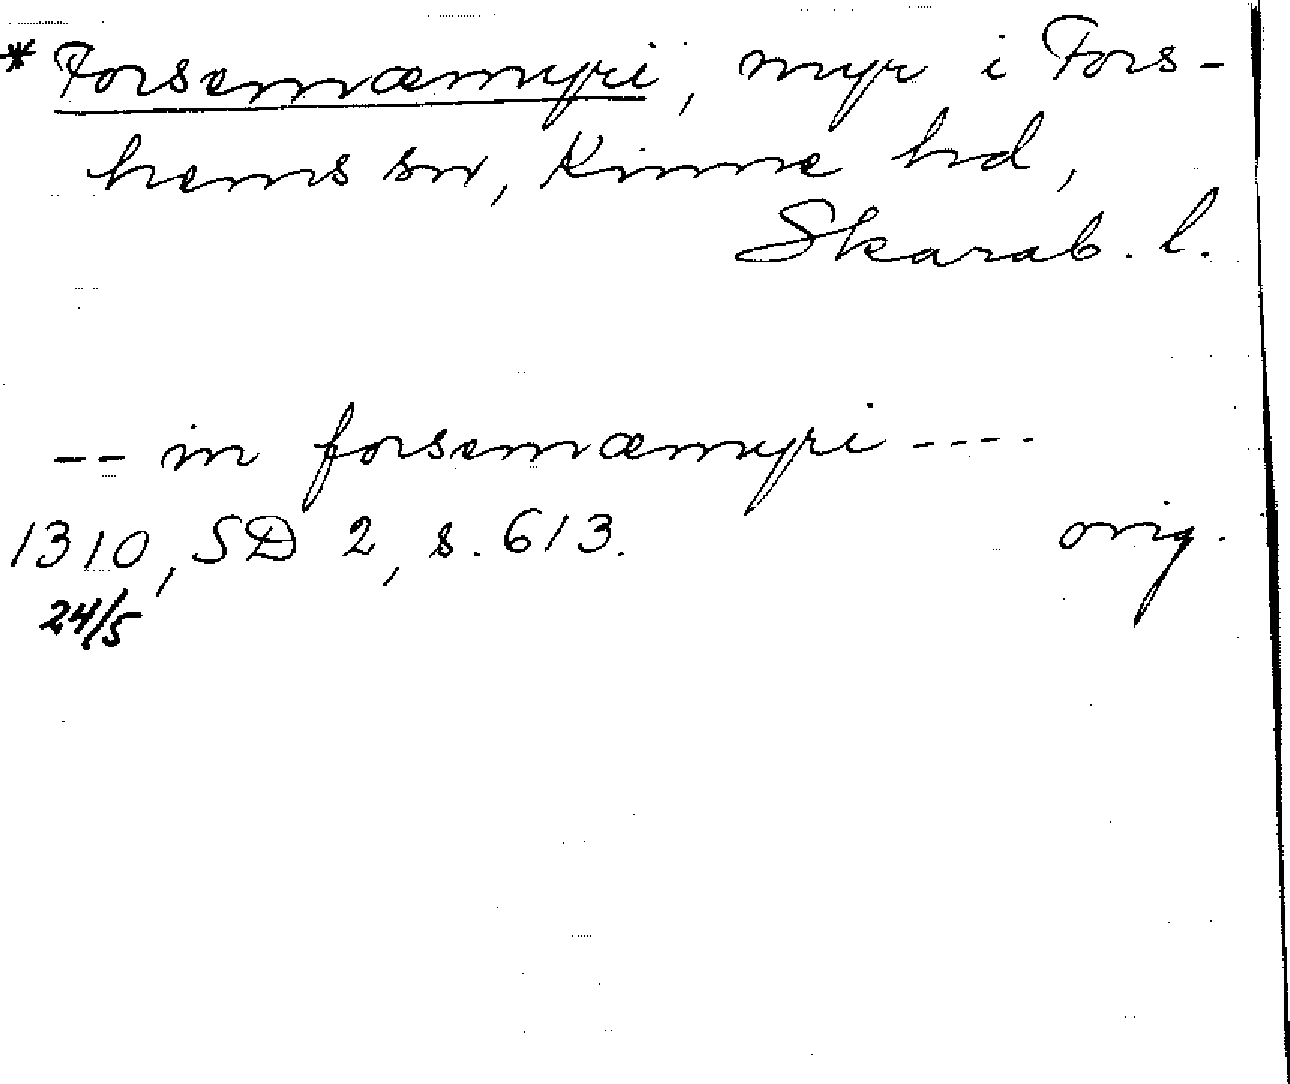 * Forsemæmyri, myr i Fors-
hems sn, Kinne hd,
Skarab. l.
-- in forsemæmyri ----
1310, SD 2, s. 613. orig.
24/5